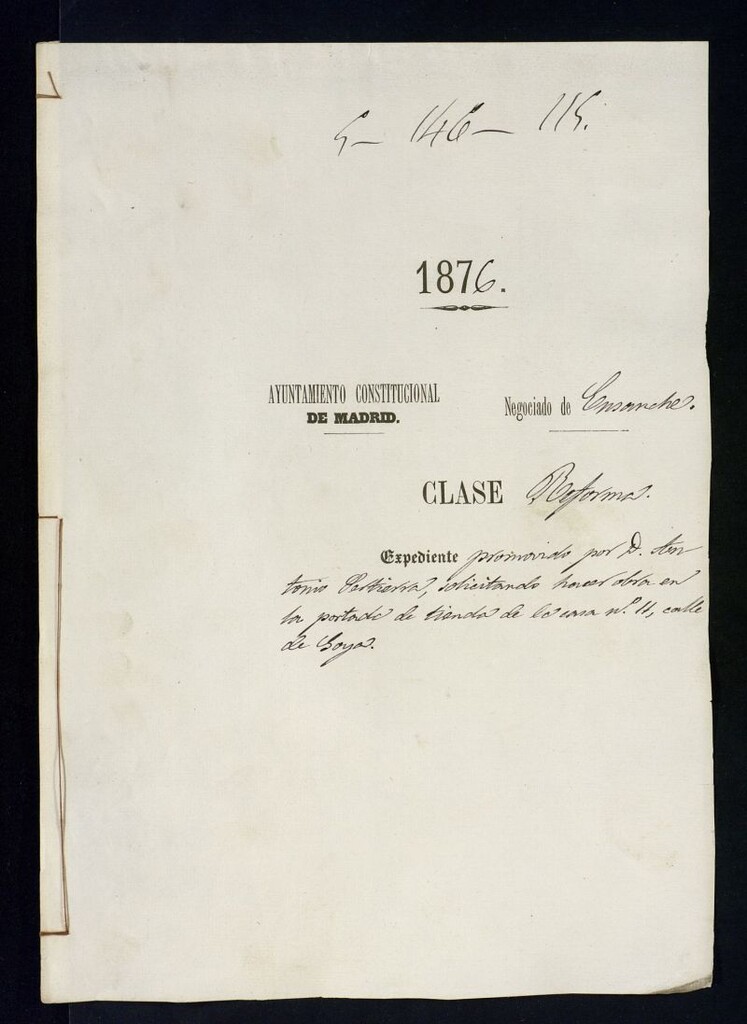 5 - 146 - 115.
1876.
AYUNTAMIENTO CONSTITUCIONAL
DE MADRID.
Negociado de Ensanche.
CLASE Reforma.
Expediente promovido por D. An
tonio Pertierra, solicitando hacer obra en
la portada de tienda de la casa nº 11, calle
de Goya.